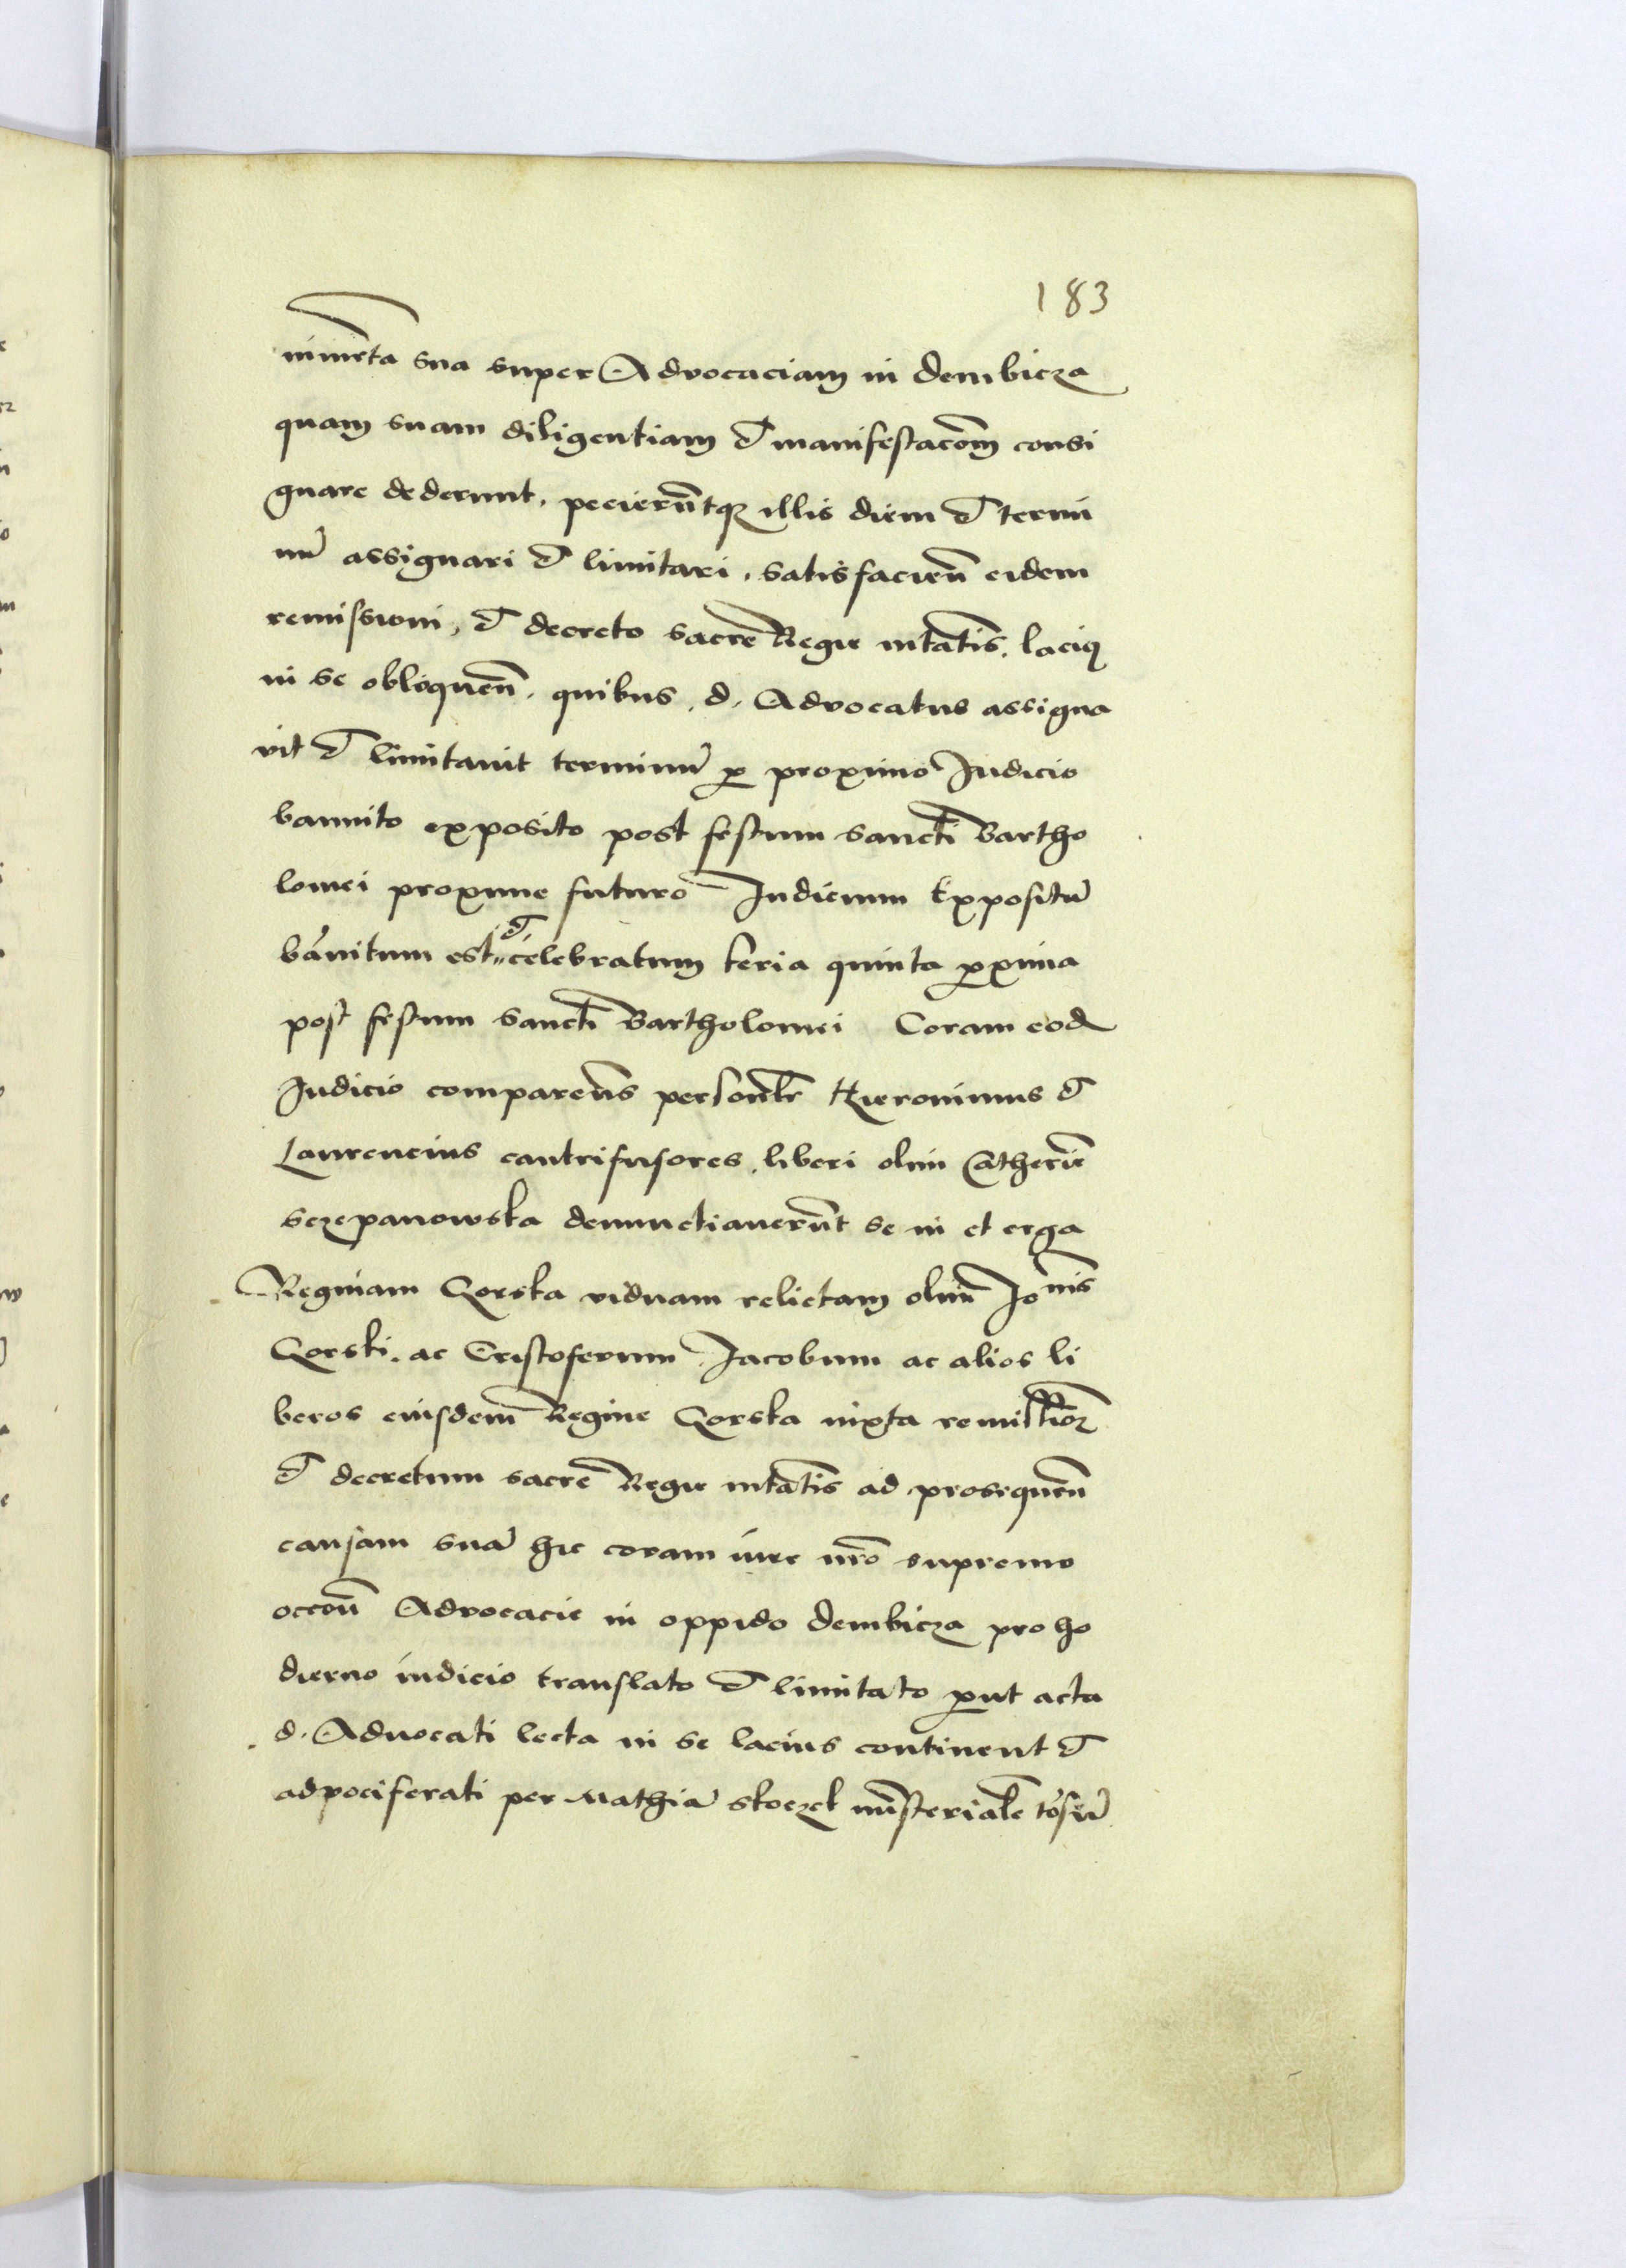 183
nimēta sua super Advocaciam in dembicza
quam suam diligentiam & manifestacōm consi
gnare dederunt, pecierūtq; illis diem & termi
nū assignari & limitari, satisfacieñ eidem
remissioni, & decreto sacre Regie mtātis, lacius
in se obloqueñ. quibus. d. Advocatus assigna
vit & limitavit terminū p proximo Iudicio
bannito exposito post festum sancti Bartho
lomei proxime futuro Iudicium Expositū
bānitum est & celebratum feria quinta proxima
post festum sancti Bartholomei Coram eod
Iudicio comparens personlr Hieronimus &
Laurencius cantrifusores, liberi olim Catherie
sczepanowska denunctiaverūt se in et erga
Reginam Gorska viduam relictam olim Jonis
Gorski. ac Cristoferum Jacobum ac alios li
beros eiusdem Regine Gorska iuxta remissioēz
& decretum sacre Regie mtātis ad prosequeñ
causam suā hic coram iure nrō supremo
occoñ Advocacie in oppido dembicza pro ho
dierno iudicio translato & limitato prout acta
d. Aduocati lecta in se lacius continent &
advociferati per Mathiā skoczek mīsterialē